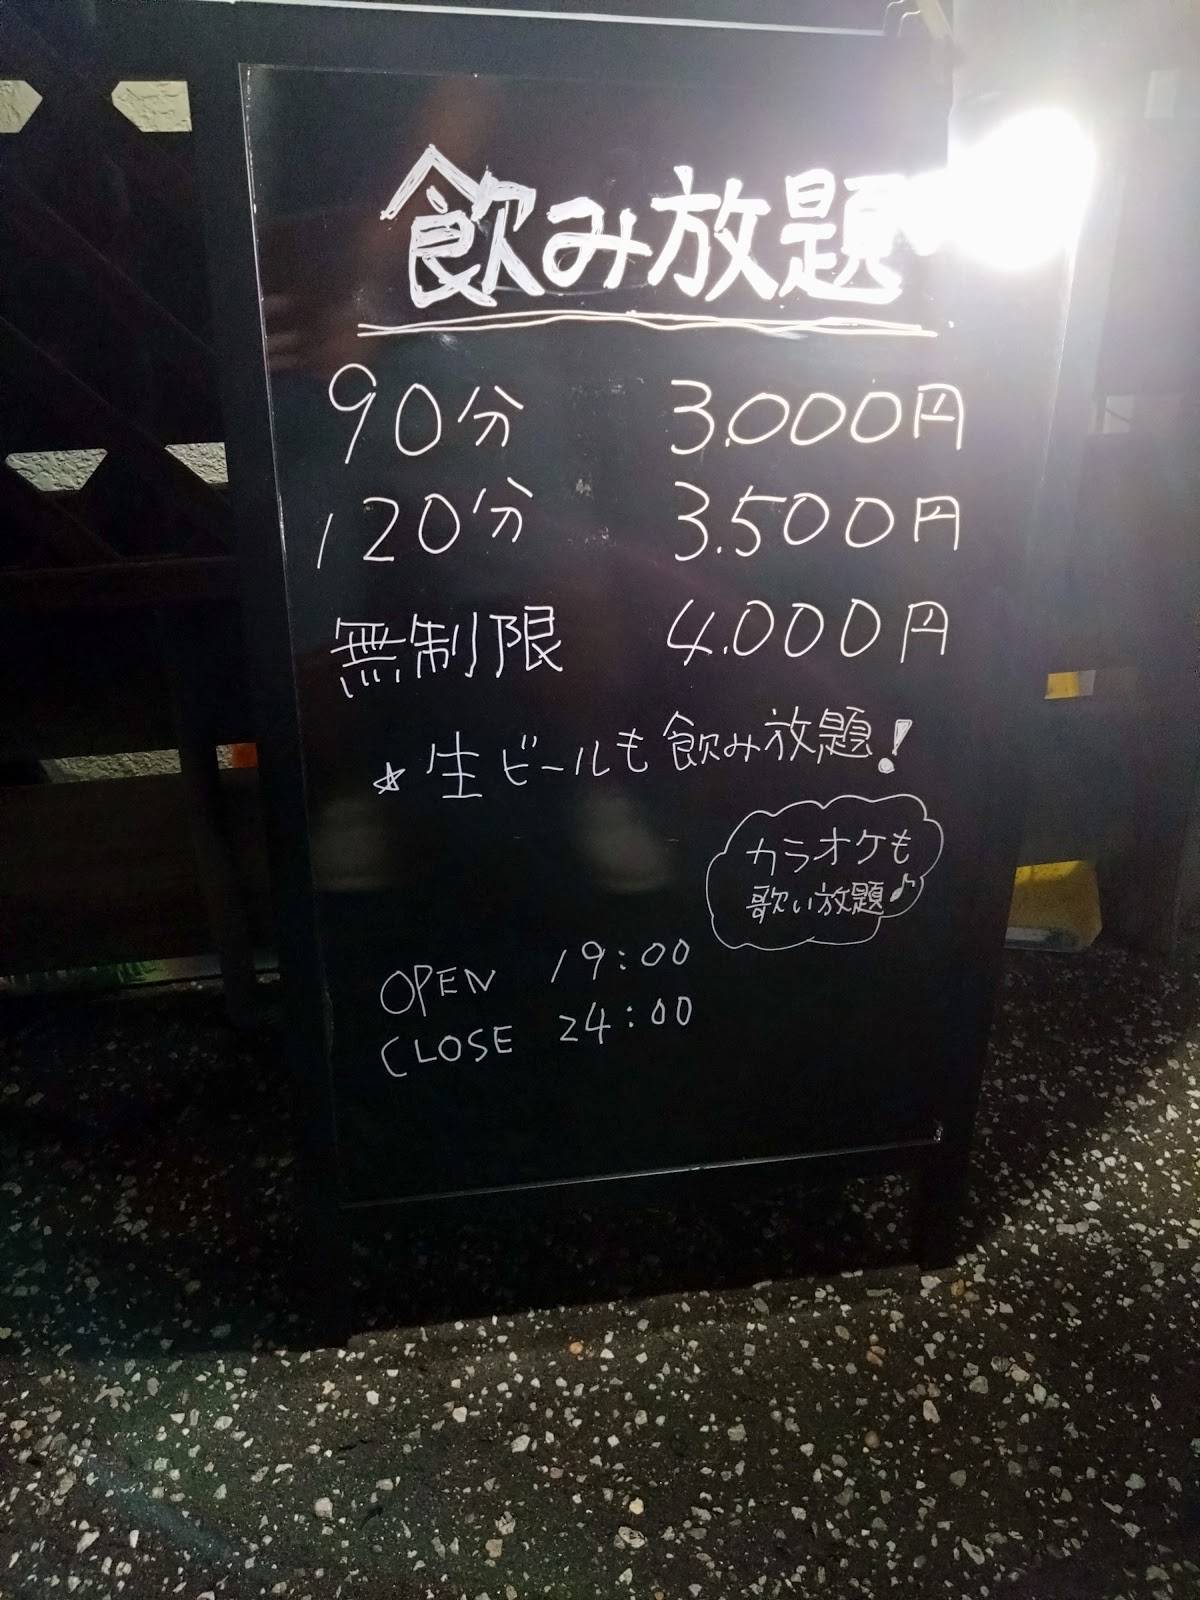 飲み放題
90分 3.000円
120分 3.500円
無制限 4.000円
☆生ビールも飲み放題!
カラオケも
歌い放題♪
OPEN 19:00
CLOSE 24:00